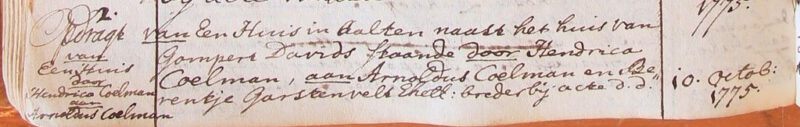 2.
Opdragt
van
Een Huis
door
Hendrica Coelman
aan
Arnoldus Coelman
van Een Huis in Aalten naast het huis van
Gompert Davids staande door Hendrica
Coelman, aan Arnoldus Coelman en Be-
rentje Garstenvelt Ehell: breder bij acte d.d.
1775.
10. Octob:
1775.